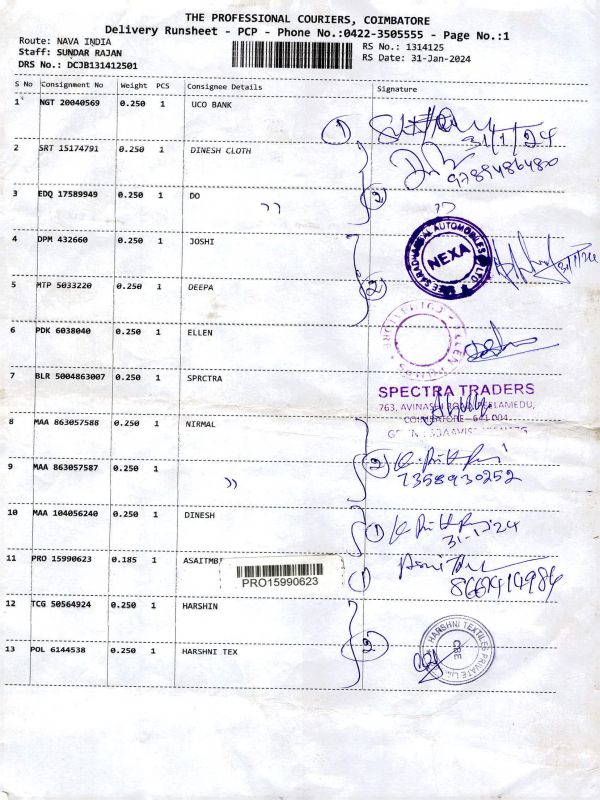 THE PROFESSIONAL COURIERS, COIMBATORE
Delivery Runsheet - PCP - Phone No.:0422-3505555 - Page No.:1
Route: NAVA INDIA
RS No.: 1314125
Staff: SUNDAR RAJAN
RS Date: 31-Jan-2024
DRS No.: DCJB131412501
S No Consignment No Weight PCS Consignee Details Signature
1 NGT 20040569 0.250 1 UCO BANK
① 31/1/24
2 SRT 15174791 0.250 1 DINESH CLOTH
9789486480
3 EDQ 17589949 0.250 1 DO
,, ② ,,
4 DPM 432660 0.250 1 JOSHI
AUTOMOBILES
NEXA
31/1/24
5 MTP 5033220 0.250 1 DEEPA
②
6 PDK 6038040 0.250 1 ELLEN
7 BLR 5004863007 0.250 1 SPRCTRA
SPECTRA TRADERS
763, AVINASHI ROAD, PEELAMEDU,
COIMBATORE - 641 004.
8 MAA 863057588 0.250 1 NIRMAL
②
7358930252
9 MAA 863057587 0.250 1
,,
10 MAA 104056240 0.250 1 DINESH
① 31-1-24
11 PRO 15990623 0.185 1 ASAITMB
PRO15990623
①
12 TCG 50564924 0.250 1 HARSHIN
HARSHNI TEXTILES PRIVATE
CBE
②
13 POL 6144538 0.250 1 HARSHNI TEX